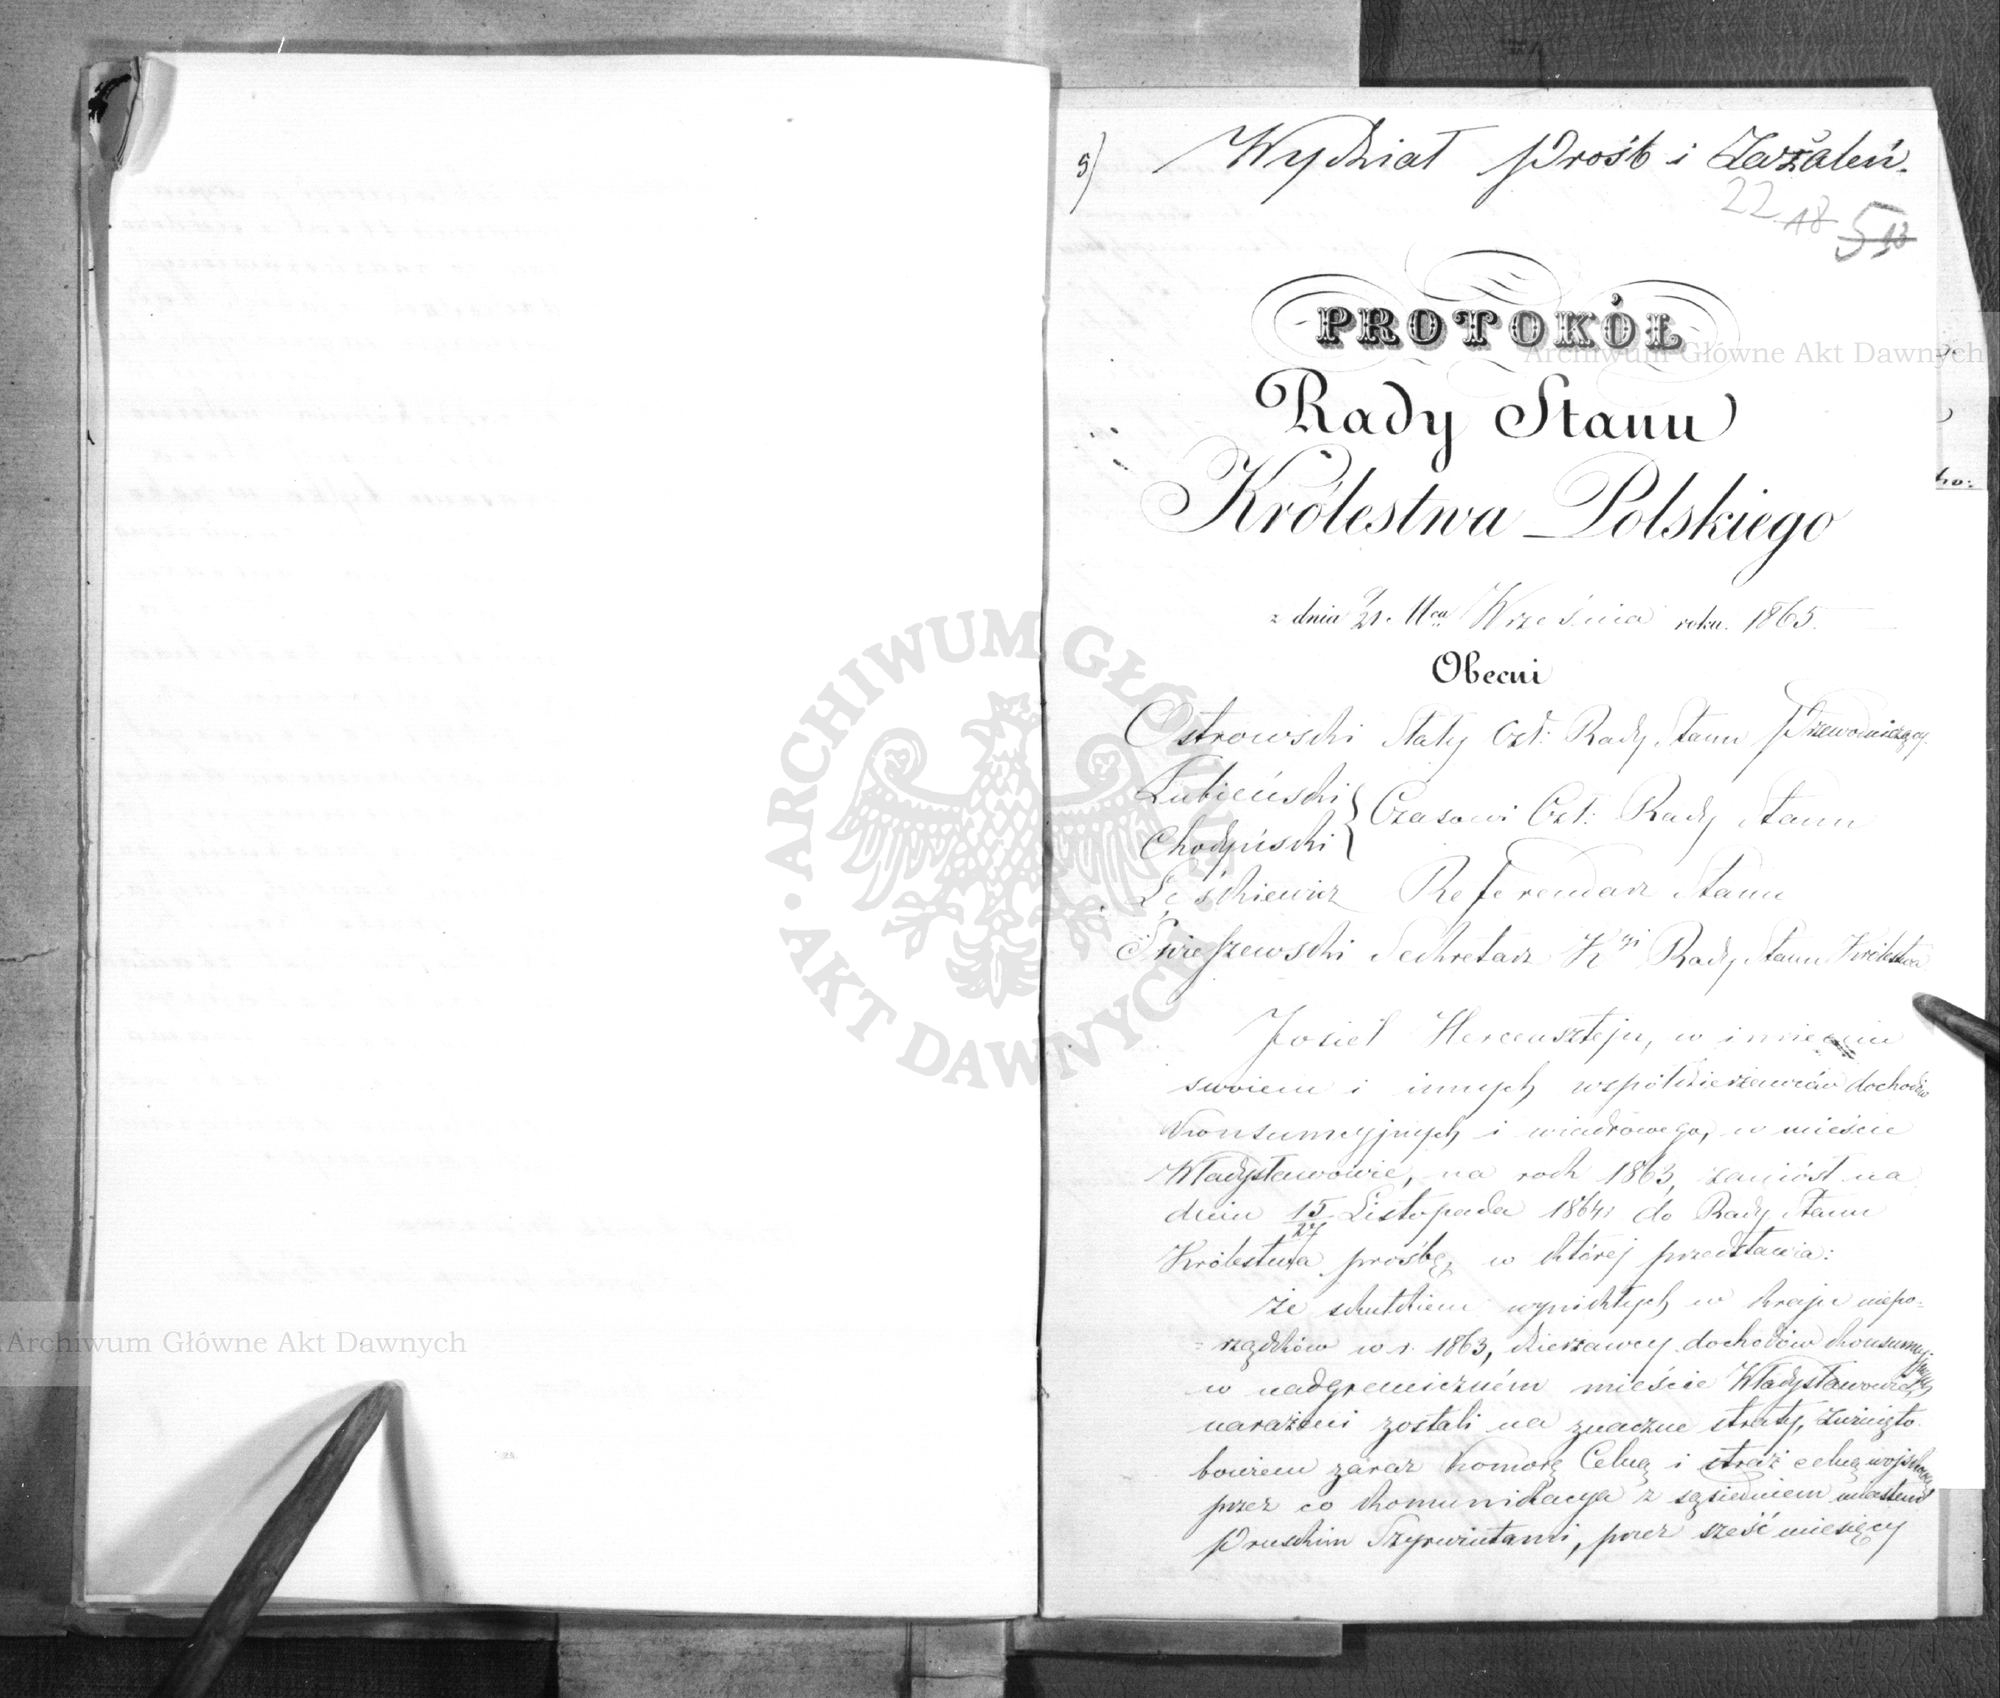 5) Wydział Próśb i Zażaleń.
22 18 5 13
PROTOKÓŁ
Rady Stanu
Królestwa Polskiego
z dnia 9/21. Mca Września roku. 1865.
Obecni
Ostrowski Stały Czł: Rady Stanu Przewodniczący.
Łubieński
Chodyński } Czasowi Czł: Rady Stanu
Leśkiewicz Referendarz Stanu
Świeszewski Sekretarz Kryi Rady Stanu Królestwa
Josiel Hercensztejn, w imieniu
swoiem i innych współdzierżawców dochodów
konsumcyjnych i wiadrowego, w mieście
Władysławowie, na rok 1863, zaniósł na
dniu 15/27 Listopada 1864 r do Rady Stanu
Królestwa prośbę, w której przedstawia:
że skutkiem wynikłych w kraju niepo-
=rządków w r. 1863, dzierżawcy dochodów konsumcyj-
nych w nadgraniczném mieście Władysławowie,
narażeni zostali na znaczne straty, zwinięto
bowiem zaraz Komorę Celną i straż celną wojskową
przez co komunikacya z sąsiedniem miastem
Pruskim Szyrwintami, przez sześć miesięcy
Archiwum Główne Akt Dawnych
Archiwum Główne Akt Dawnych
ARCHIWUM GŁÓWNE · AKT DAWNYCH ·